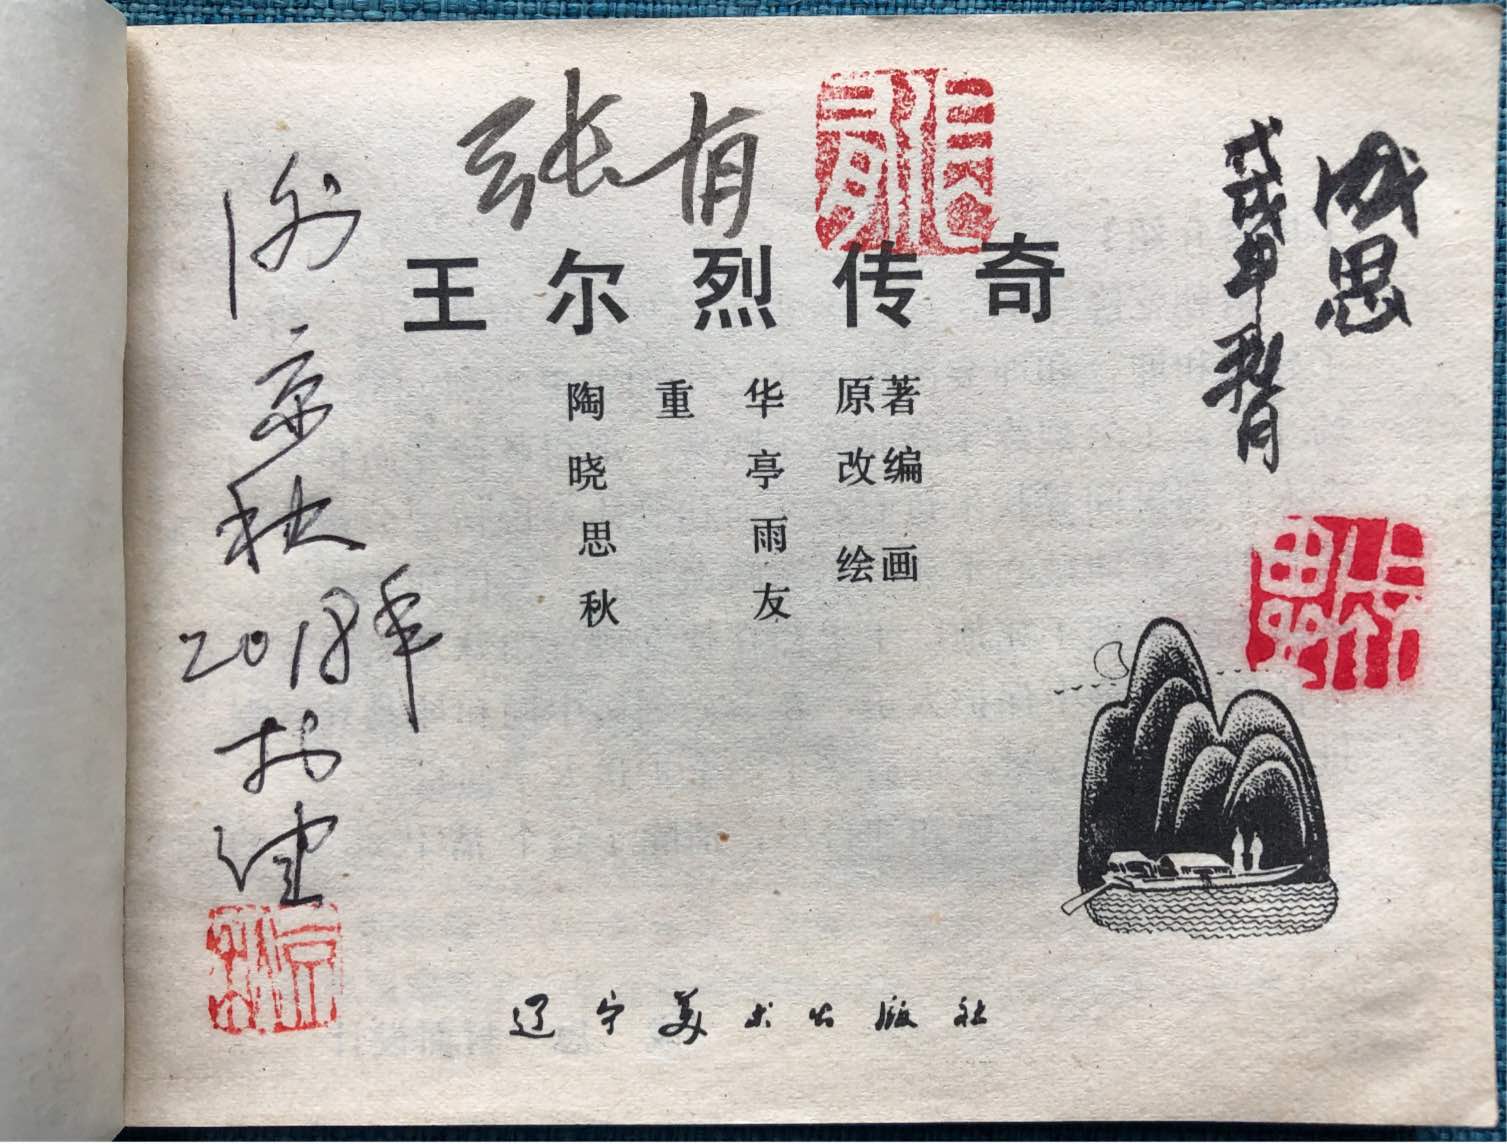 张有
王尔烈传奇
陶重华 原著
晓亭 改编
思雨
秋友
绘画
成思
戊戌年
谢京秋
2018年
辽宁美术出版社